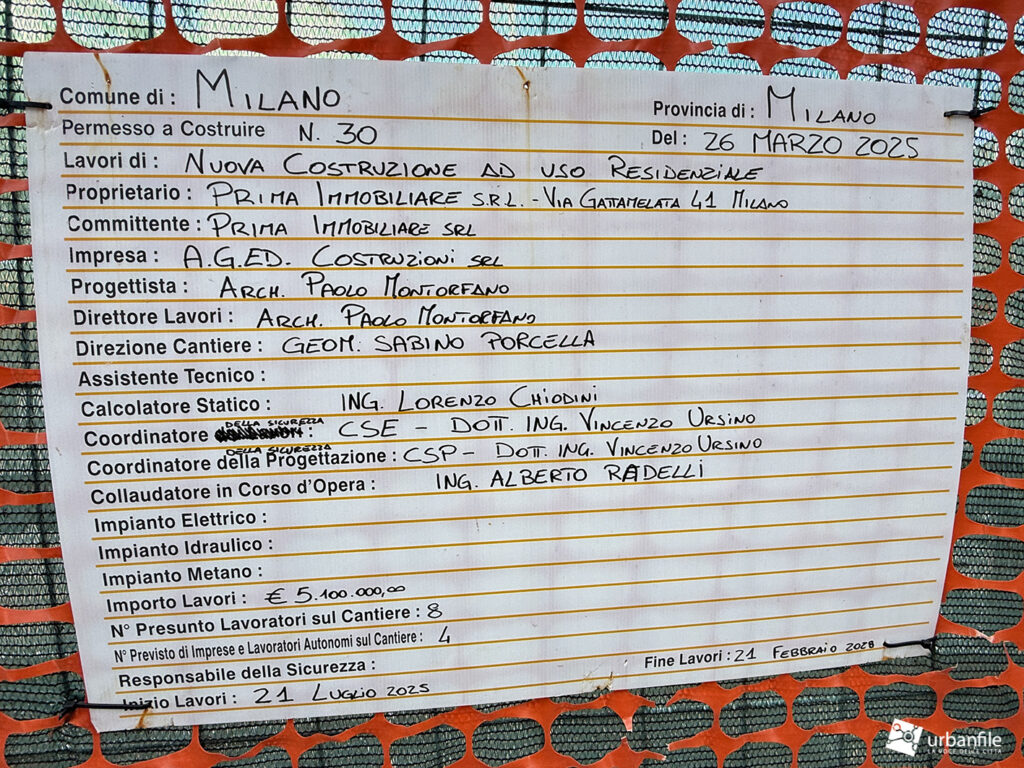 Comune di : MILANO Provincia di : MILANO
Permesso a Costruire N. 30 Del : 26 MARZO 2025
Lavori di : NUOVA COSTRUZIONE AD USO RESIDENZIALE
Proprietario : PRIMA IMMOBILIARE S.R.L. - VIA GATTAMELATA 41 MILANO
Committente : PRIMA IMMOBILIARE SRL
Impresa : A.G.ED. COSTRUZIONI SRL
Progettista : ARCH. PAOLO MONTORFANO
Direttore Lavori : ARCH. PAOLO MONTORFANO
Direzione Cantiere : GEOM. SABINO PORCELLA
Assistente Tecnico :
Calcolatore Statico : ING. LORENZO CHIODINI
DELLA SICUREZZA
Coordinatore : CSE - DOTT. ING. VINCENZO URSINO
DELLA SICUREZZA
Coordinatore della Progettazione : CSP - DOTT. ING. VINCENZO URSINO
Collaudatore in Corso d'Opera : ING. ALBERTO RADELLI
Impianto Elettrico :
Impianto Idraulico :
Impianto Metano :
Importo Lavori : € 5.100.000,00
N° Presunto Lavoratori sul Cantiere : 8
N° Previsto di Imprese e Lavoratori Autonomi sul Cantiere : 4
Responsabile della Sicurezza :
Inizio Lavori : 21 LUGLIO 2025 Fine Lavori : 21 FEBBRAIO 2028
urbanfile
LA VOCE DELLA CITTÀ